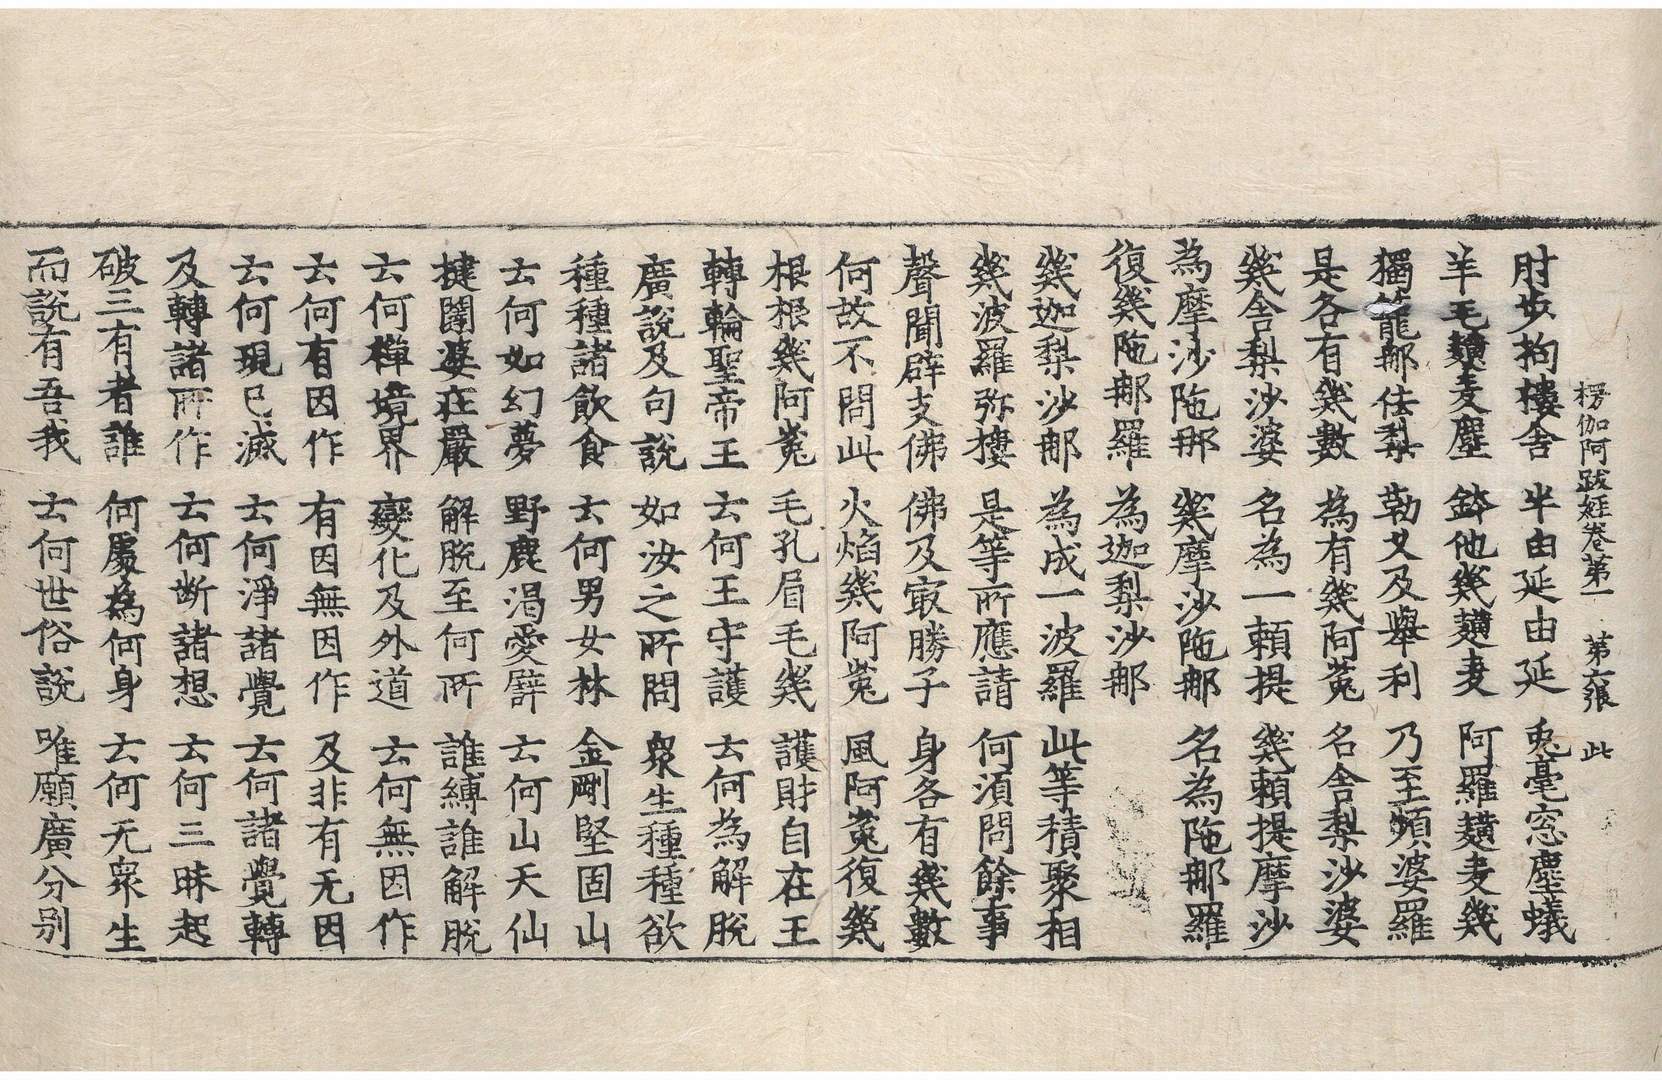 楞伽阿跋經卷第一　第六張　此
肘步拘樓舍　半由延由延　兎毫窓塵蟻
羊毛䵃麦塵　鉢他幾䵃麦　阿羅䵃麦幾
獨籠那佉梨　勒叉及舉利　乃至頻婆羅
是各有幾數　為有幾阿菟　名舎梨沙婆
幾舎梨沙婆　名為一頼提　幾頼提摩沙
為摩沙陁那　幾摩沙陁那　名為陁那羅
復幾陁那羅　為迦梨沙那
幾迦梨沙那　為成一波羅　此等積聚相
幾波羅弥樓　是等所應請　何湏問餘事
聲聞辟支佛　佛及㝡勝子　身各有幾數
何故不問此　火焰幾阿菟　風阿菟復幾
根根幾阿菟　毛孔眉毛幾　護財自在王
轉輪聖帝王　云何王守護　云何為解脫
廣說及句說　如汝之所問　衆生種種欲
種種諸飲食　云何男女林　金剛堅固山
云何如幻夢　野鹿渴愛譬　云何山天仙
揵闥婆莊嚴　解脫至何所　誰縛誰解脫
云何禅境界　變化及外道　云何無因作
云何有因作　有因無因作　及非有无因
云何現已滅　云何淨諸覺　云何諸覺轉
及轉諸所作　云何断諸想　云何三昧起
破三有者誰　何䖏為何身　云何无衆生
而說有吾我　云何世俗說　唯願廣分別